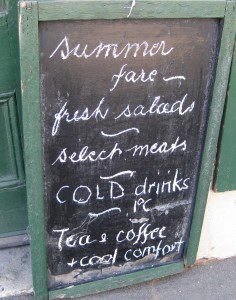 summer
fare
fresh salads
select meats
COLD drinks
Tea & coffee
+ cool comfort